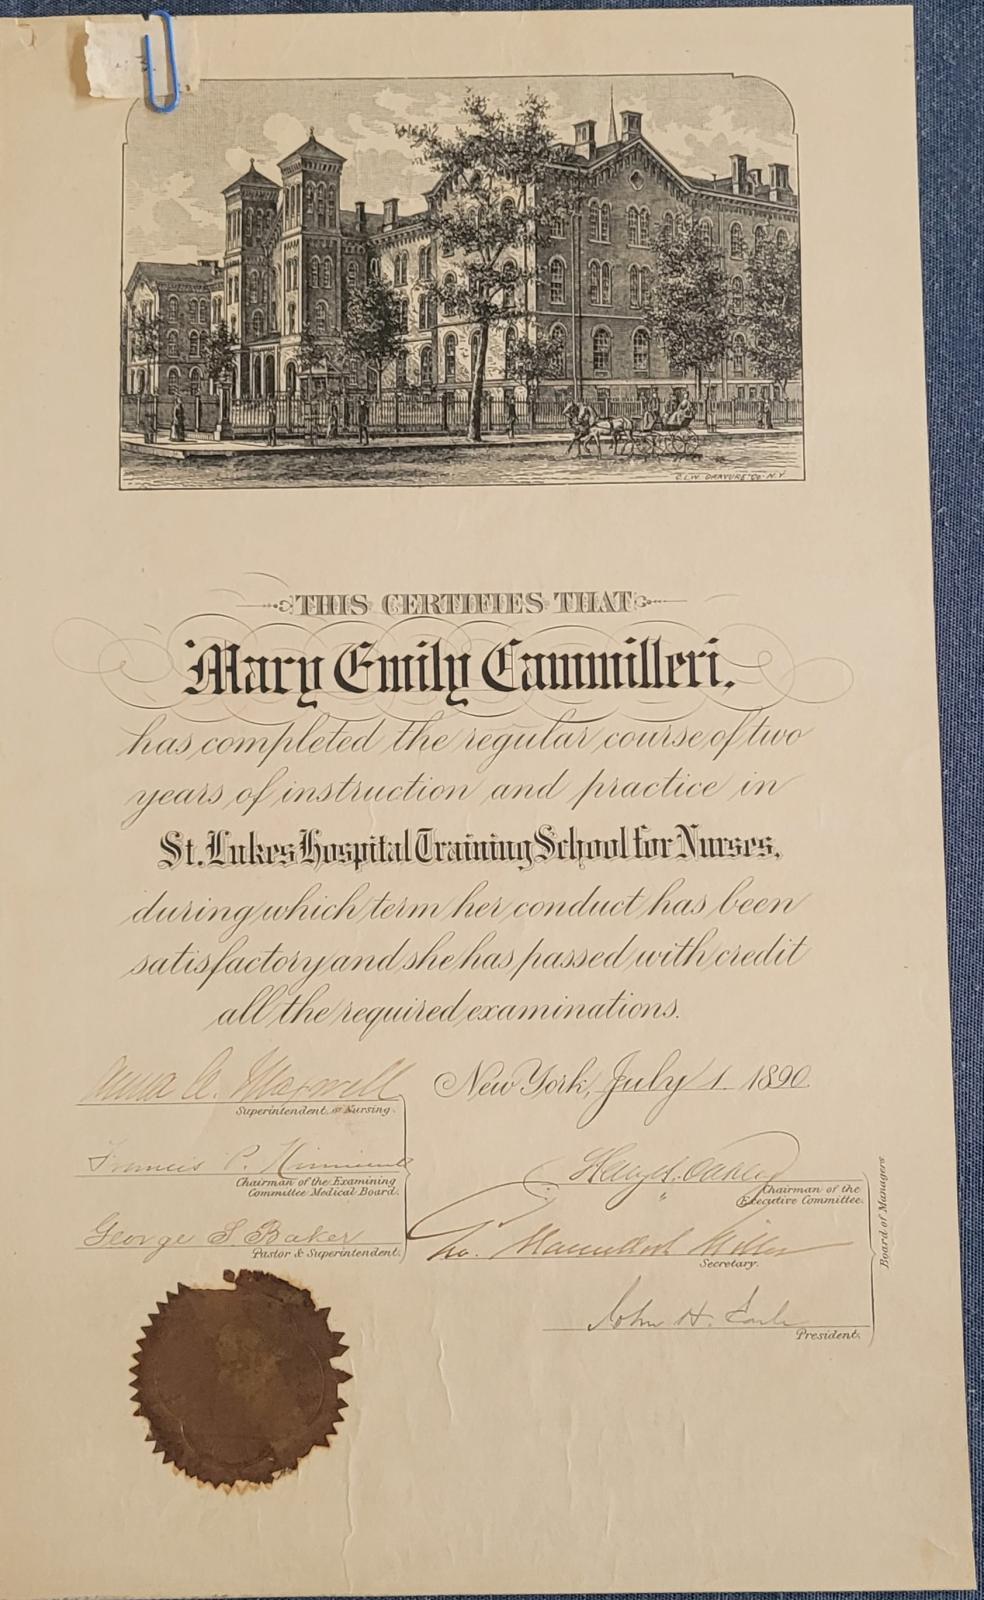 C.L.W. GRAVURE CO. N.Y.
THIS CERTIFIES THAT
Mary Emily Cammilleri,
has completed the regular course of two
years of instruction and practice in
St. Lukes Hospital Training School for Nurses,
during which term her conduct has been
satisfactory and she has passed with credit
all the required examinations.
New York, July 1 1890.
Anna C. Maxwell
Superintendent of Nursing.
Francis P.
Chairman of the Examining
Committee Medical Board.
George S. Baker
Pastor & Superintendent.
Chairman of the
Executive Committee.
Miller
Secretary.
John H. Earle
President.
Board of Managers